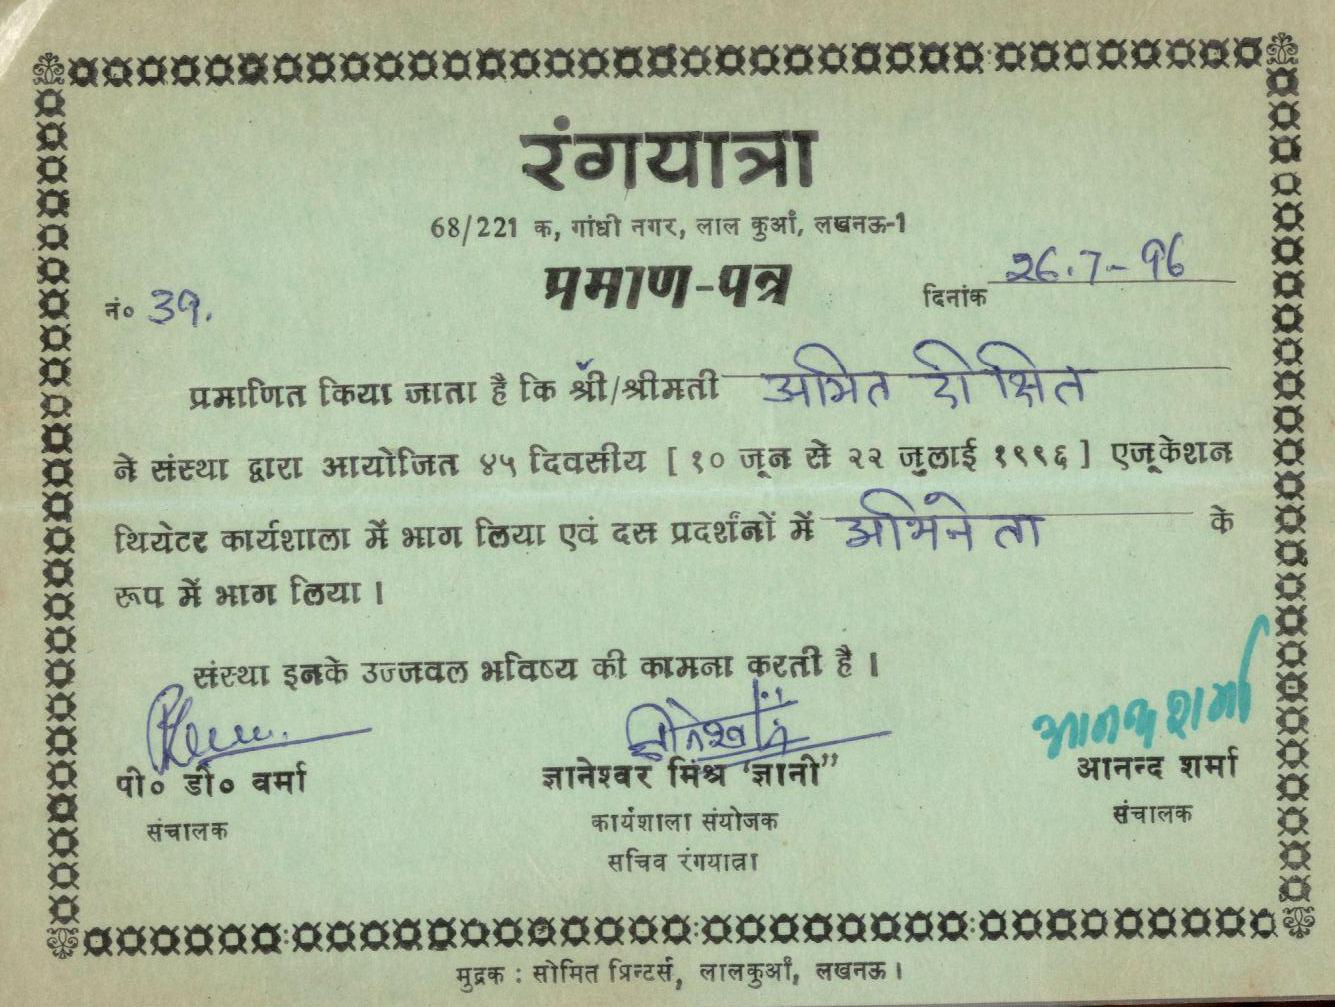 रंगयात्रा
68/221 क, गांधी नगर, लाल कुआँ, लखनऊ-1
प्रमाण-पत्र
नं० 39.
दिनांक 26.7-96
प्रमाणित किया जाता है कि श्री/श्रीमती अमित दीक्षित
ने संस्था द्वारा आयोजित ४५ दिवसीय [ १० जून से २२ जुलाई १९९६ ] एजूकेशन
थियेटर कार्यशाला में भाग लिया एवं दस प्रदर्शनों में अभिनेता के
रूप में भाग लिया ।
संस्था इनके उज्जवल भविष्य की कामना करती है ।
आनन्द शर्मा
पी० डी० वर्मा
ज्ञानेश्वर मिश्र 'ज्ञानी"
आनन्द शर्मा
संचालक
कार्यशाला संयोजक
संचालक
सचिव रंगयात्रा
मुद्रक : सोमित प्रिन्टर्स, लालकुआँ, लखनऊ ।